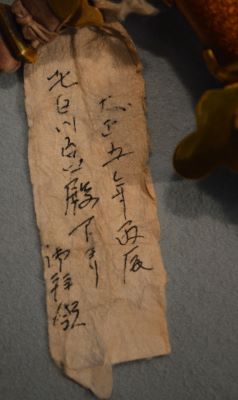 大正五年丙辰
北白川宮殿下より
御拝領